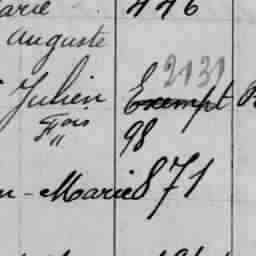 arie 446
Auguste
2131
Julien Exempt
Fois 98
"
n-Marie 871